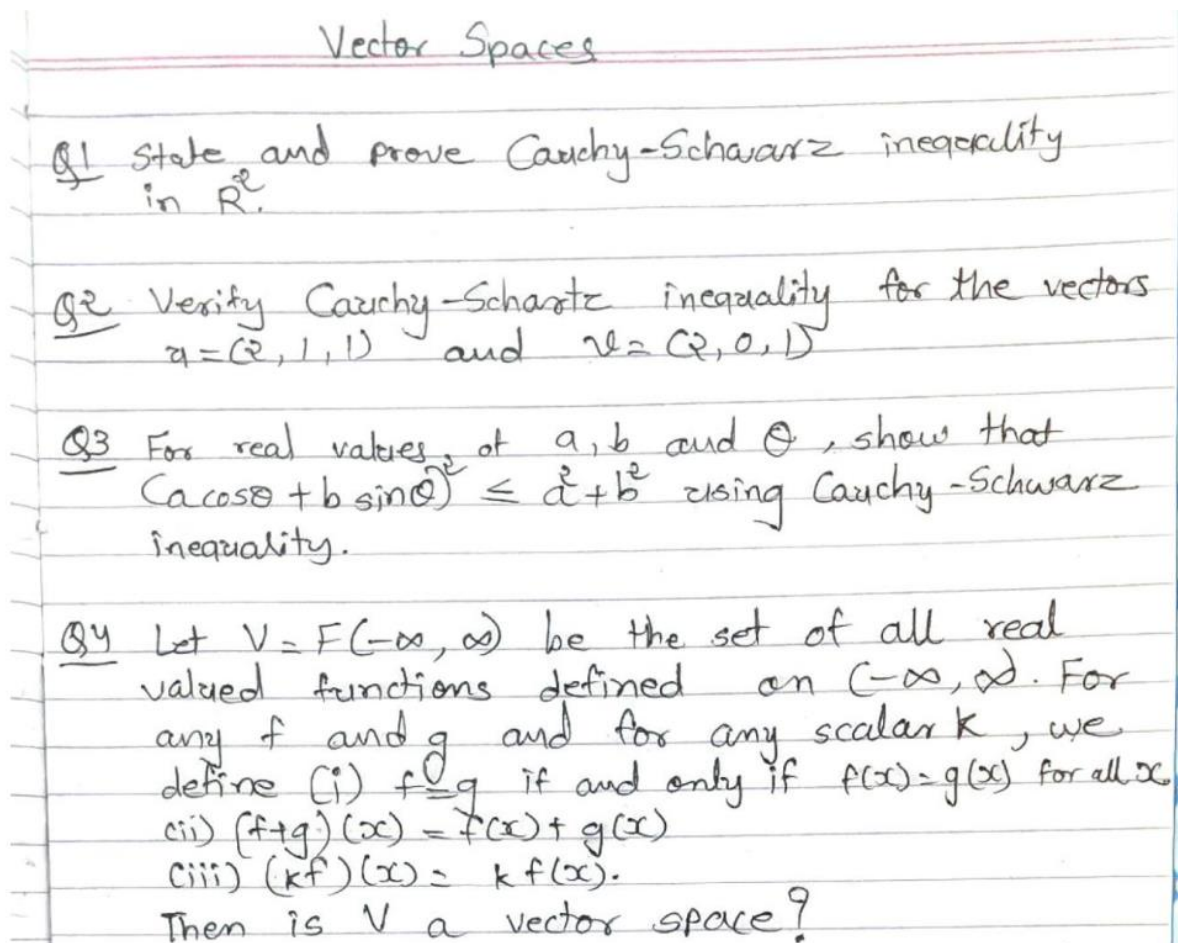 Vector Spaces
Q1 State and prove Cauchy-Schwarz inequality
in R².
Q2 Verify Cauchy-Schartz inequality for the vectors
u = (2, 1, 1) and v = (2, 0, 1)
Q3 For real values of a, b and θ, show that
(a cosθ + b sinθ)² ≤ a² + b² using Cauchy-Schwarz
inequality.
Q4 Let V = F(-∞, ∞) be the set of all real
valued functions defined on (-∞, ∞). For
any f and g and for any scalar k, we
define (i) f = g if and only if f(x) = g(x) for all x
(ii) (f+g)(x) = f(x) + g(x)
(iii) (kf)(x) = k f(x).
Then is V a vector space?